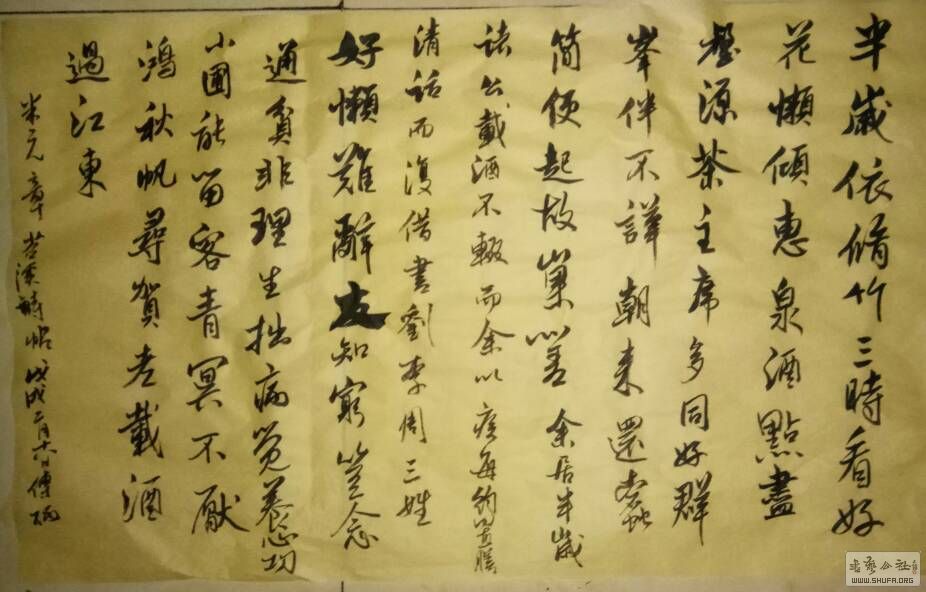 半歲依脩竹三時看好
花懶傾惠泉酒點盡
壑源茶主席多同好群
峯伴不譁朝来還蠹
简便起故巢嗟余居半歲
諸公載酒不輟而余以疾每約置膳
清話而復借書劉李周三姓
好懶難辭友知窮豈念
通貧非理生拙病覺養心功
小圃能留客青冥不厭
鴻秋帆尋賀老載酒
過江東
米元章苕溪詩帖戊戌二月
書藝公社
WWW.SHUFA.ORG